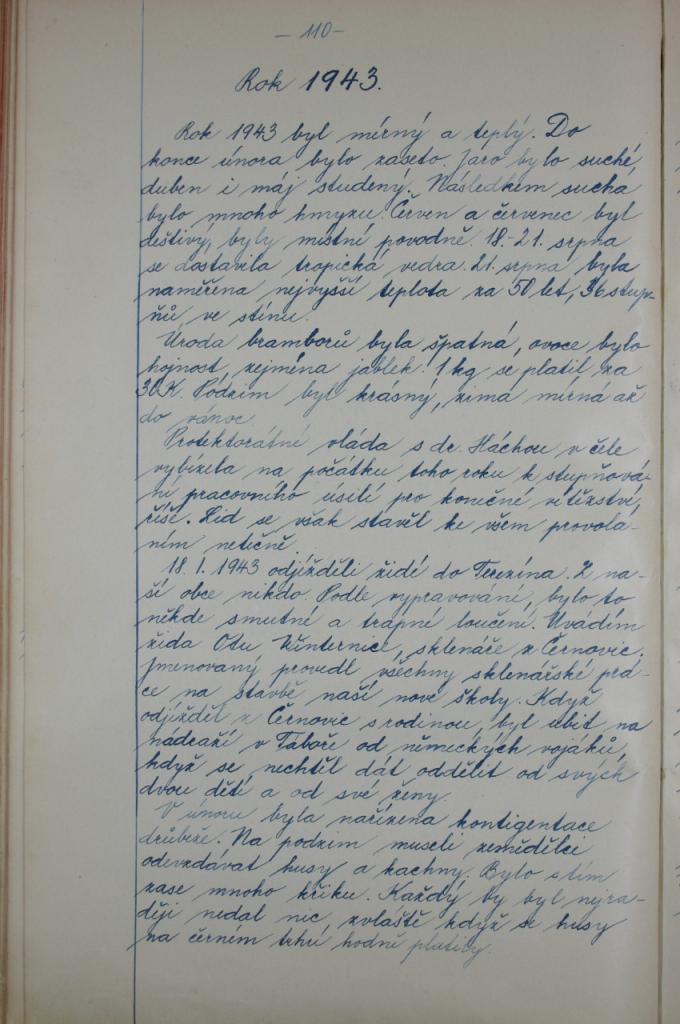 - 110 -
Rok 1943.
Rok 1943 byl mírný a teplý. Do
konce února bylo zaseto. Jaro bylo suché,
duben i máj studený. Následkem sucha
bylo mnoho hmyzu. Červen a červenec byl
deštivý, byly místní povodně. 18.-21. srpna
se dostavila tropická vedra. 21. srpna byla
naměřena nejvyšší teplota za 50 let, 36 stup-
ňů ve stínu.
Úroda bramborů byla špatná, ovoce bylo
hojnost, zejména jablek. 1 kg se platil za
30 K. Podzim byl krásný, zima mírná až
do vánoc.
Protektorátní vláda s dr. Háchou v čele
vybízela na počátku toho roku k stupňová-
ní pracovního úsilí pro konečné vítězství,
říše. Lid se však stavěl ke všem provolá-
ním netečně.
18. 1. 1943 odjížděli židé do Terezína. Z na-
ší obce nikdo. Podle vypravování, bylo to
někde smutné a trapné loučení. Uvádím
žida Otu Winternice, sklenáře z Černovic.
Jmenovaný provedl všechny sklenářské prá-
ce na stavbě naší nové školy. Když
odjížděl z Černovic s rodinou, byl ubit na
nádraží v Táboře od německých vojáků,
když se nechtěl dát oddělit od svých
dvou dětí a od své ženy.
V únoru byla nařízena kontigentace
drůbeže. Na podzim museli zemědělci
odevzdávat husy a kachny. Bylo s tím
zase mnoho křiku. Každý by byl nejra-
ději nedal nic, zvláště když se husy
na černém trhu hodně platily.